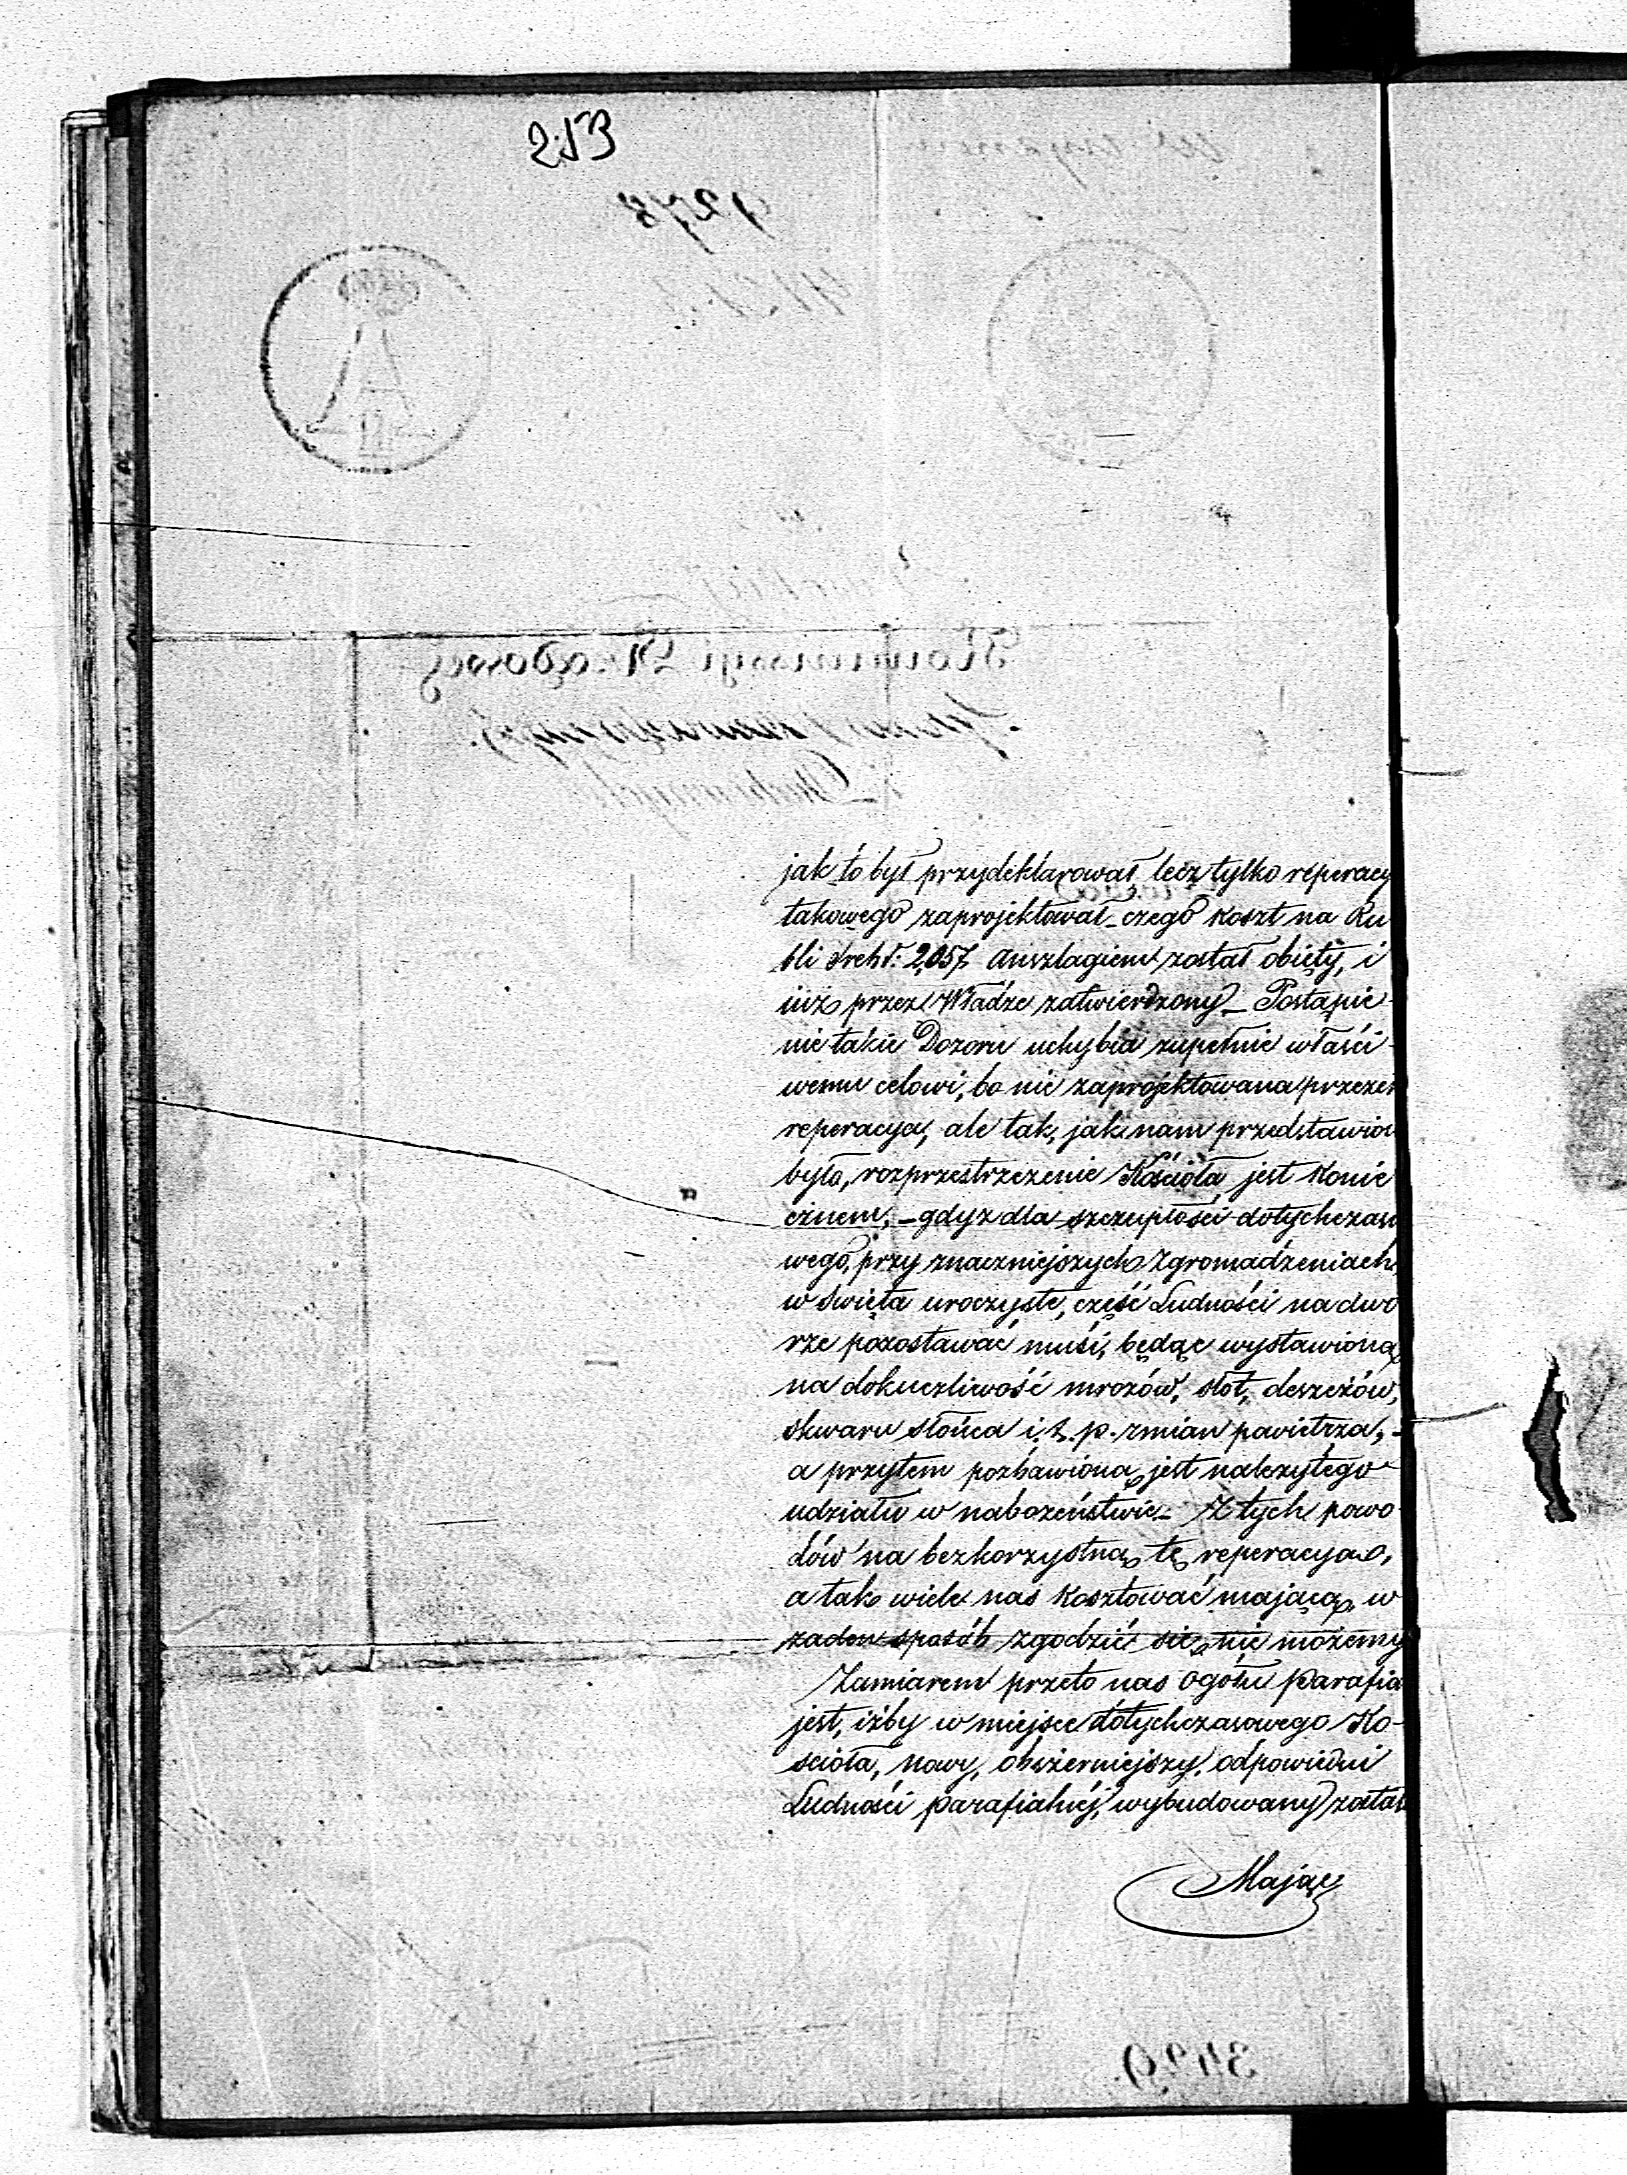 213
jak to był przydeklarował lecz tylko reperacy
takowego zaprojektował_ czego koszt na Ru
bli Srebr: 2,057 anszlagiem został obięty, i
iuż przez Władze zatwierdzony_ Postąpie-
nie takie Dozoru uchybia zupełnie właści-
wemu celowi, bo nie zaprojektowana przezeń
reperacya, ale tak, jak nam przedstawion
było, rozprzestrzezenie Kościoła jest konie
cznem,_ gdyż dla szczupłości dotychczaso
wego, przy znaczniejszych Zgromadzeniach
w Swięta uroczyste, część Ludności na dwo
rze pozostawać musi, będąc wystawioną
na dokuczliwość mrozów, słot, deszczów,
skwaru słońca i.t.p. zmian powietrza,_
a przytem pozbawioną jest należytego
udziału w nabożeństwie_ Z tych powo
dów na bezkorzystną tę reperacyą,
a tak wiele nas kosztować mającą, w
żaden sposób zgodzić się nie możemy
Zamiarem przeto nas ogółu Parafia
jest, iżby w miejsce dotychczasowego Ko-
ścioła, nowy, obszerniejszy, odpowiedni
Ludności parafialnéj, wybudowany został
Mając